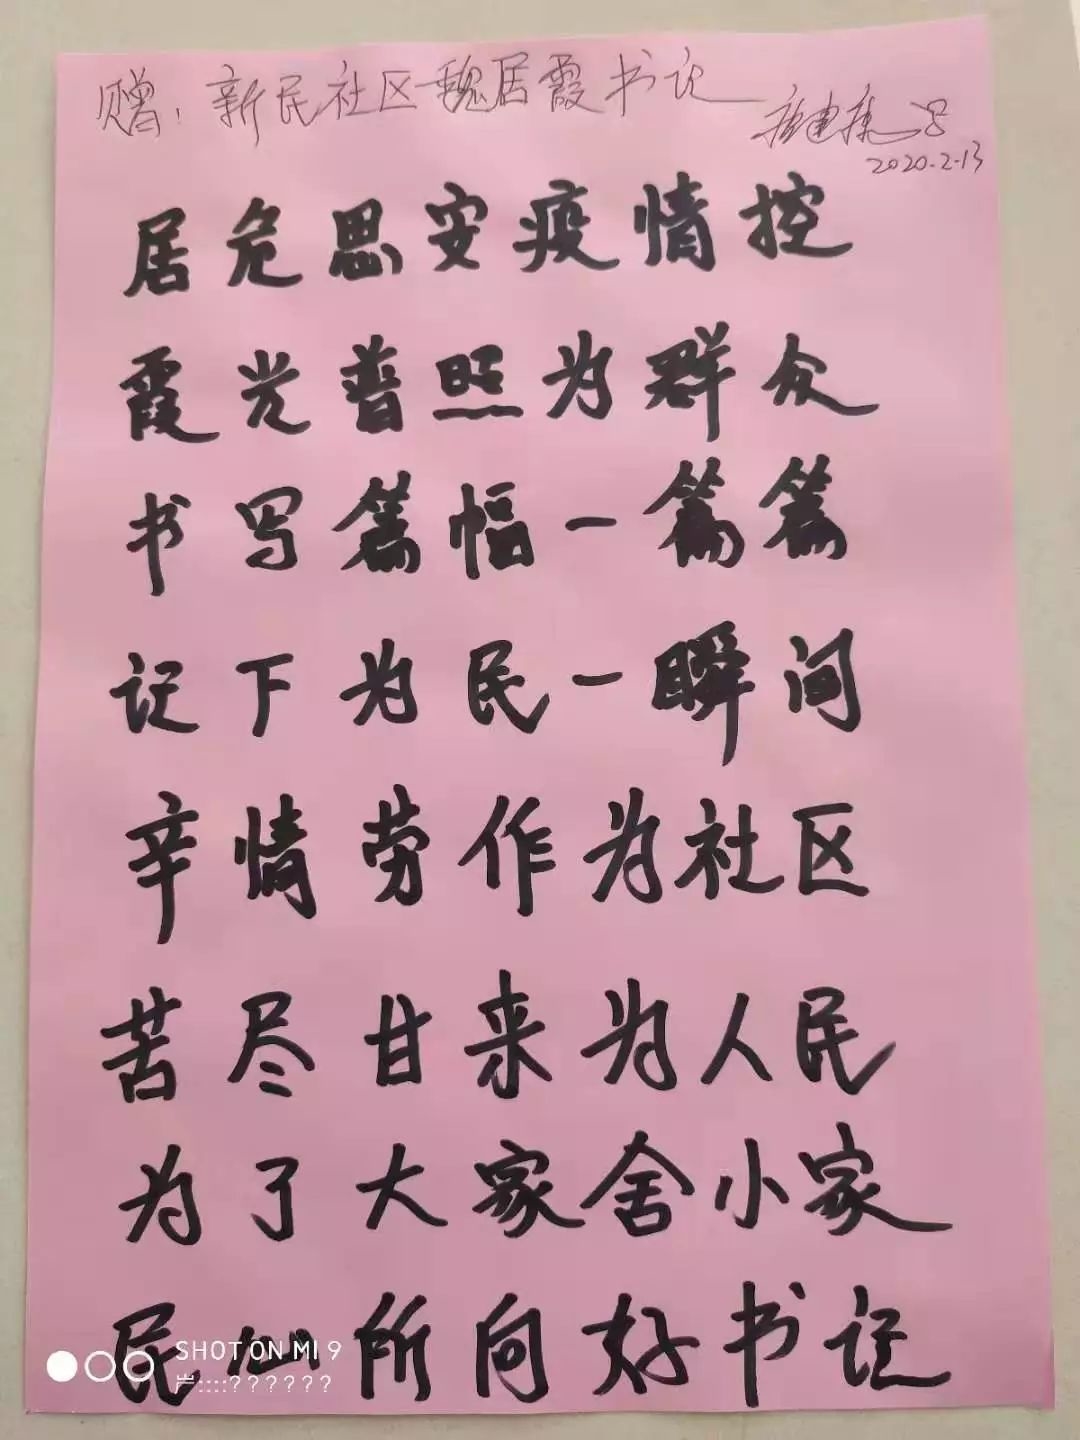 赠：新民社区魏居霞书记
2020.2.13
居危思安疫情控
霞光普照为群众
书写篇幅一篇篇
记下为民一瞬间
辛情劳作为社区
苦尽甘来为人民
为了大家舍小家
民心所向好书记
SHOT ON MI 9